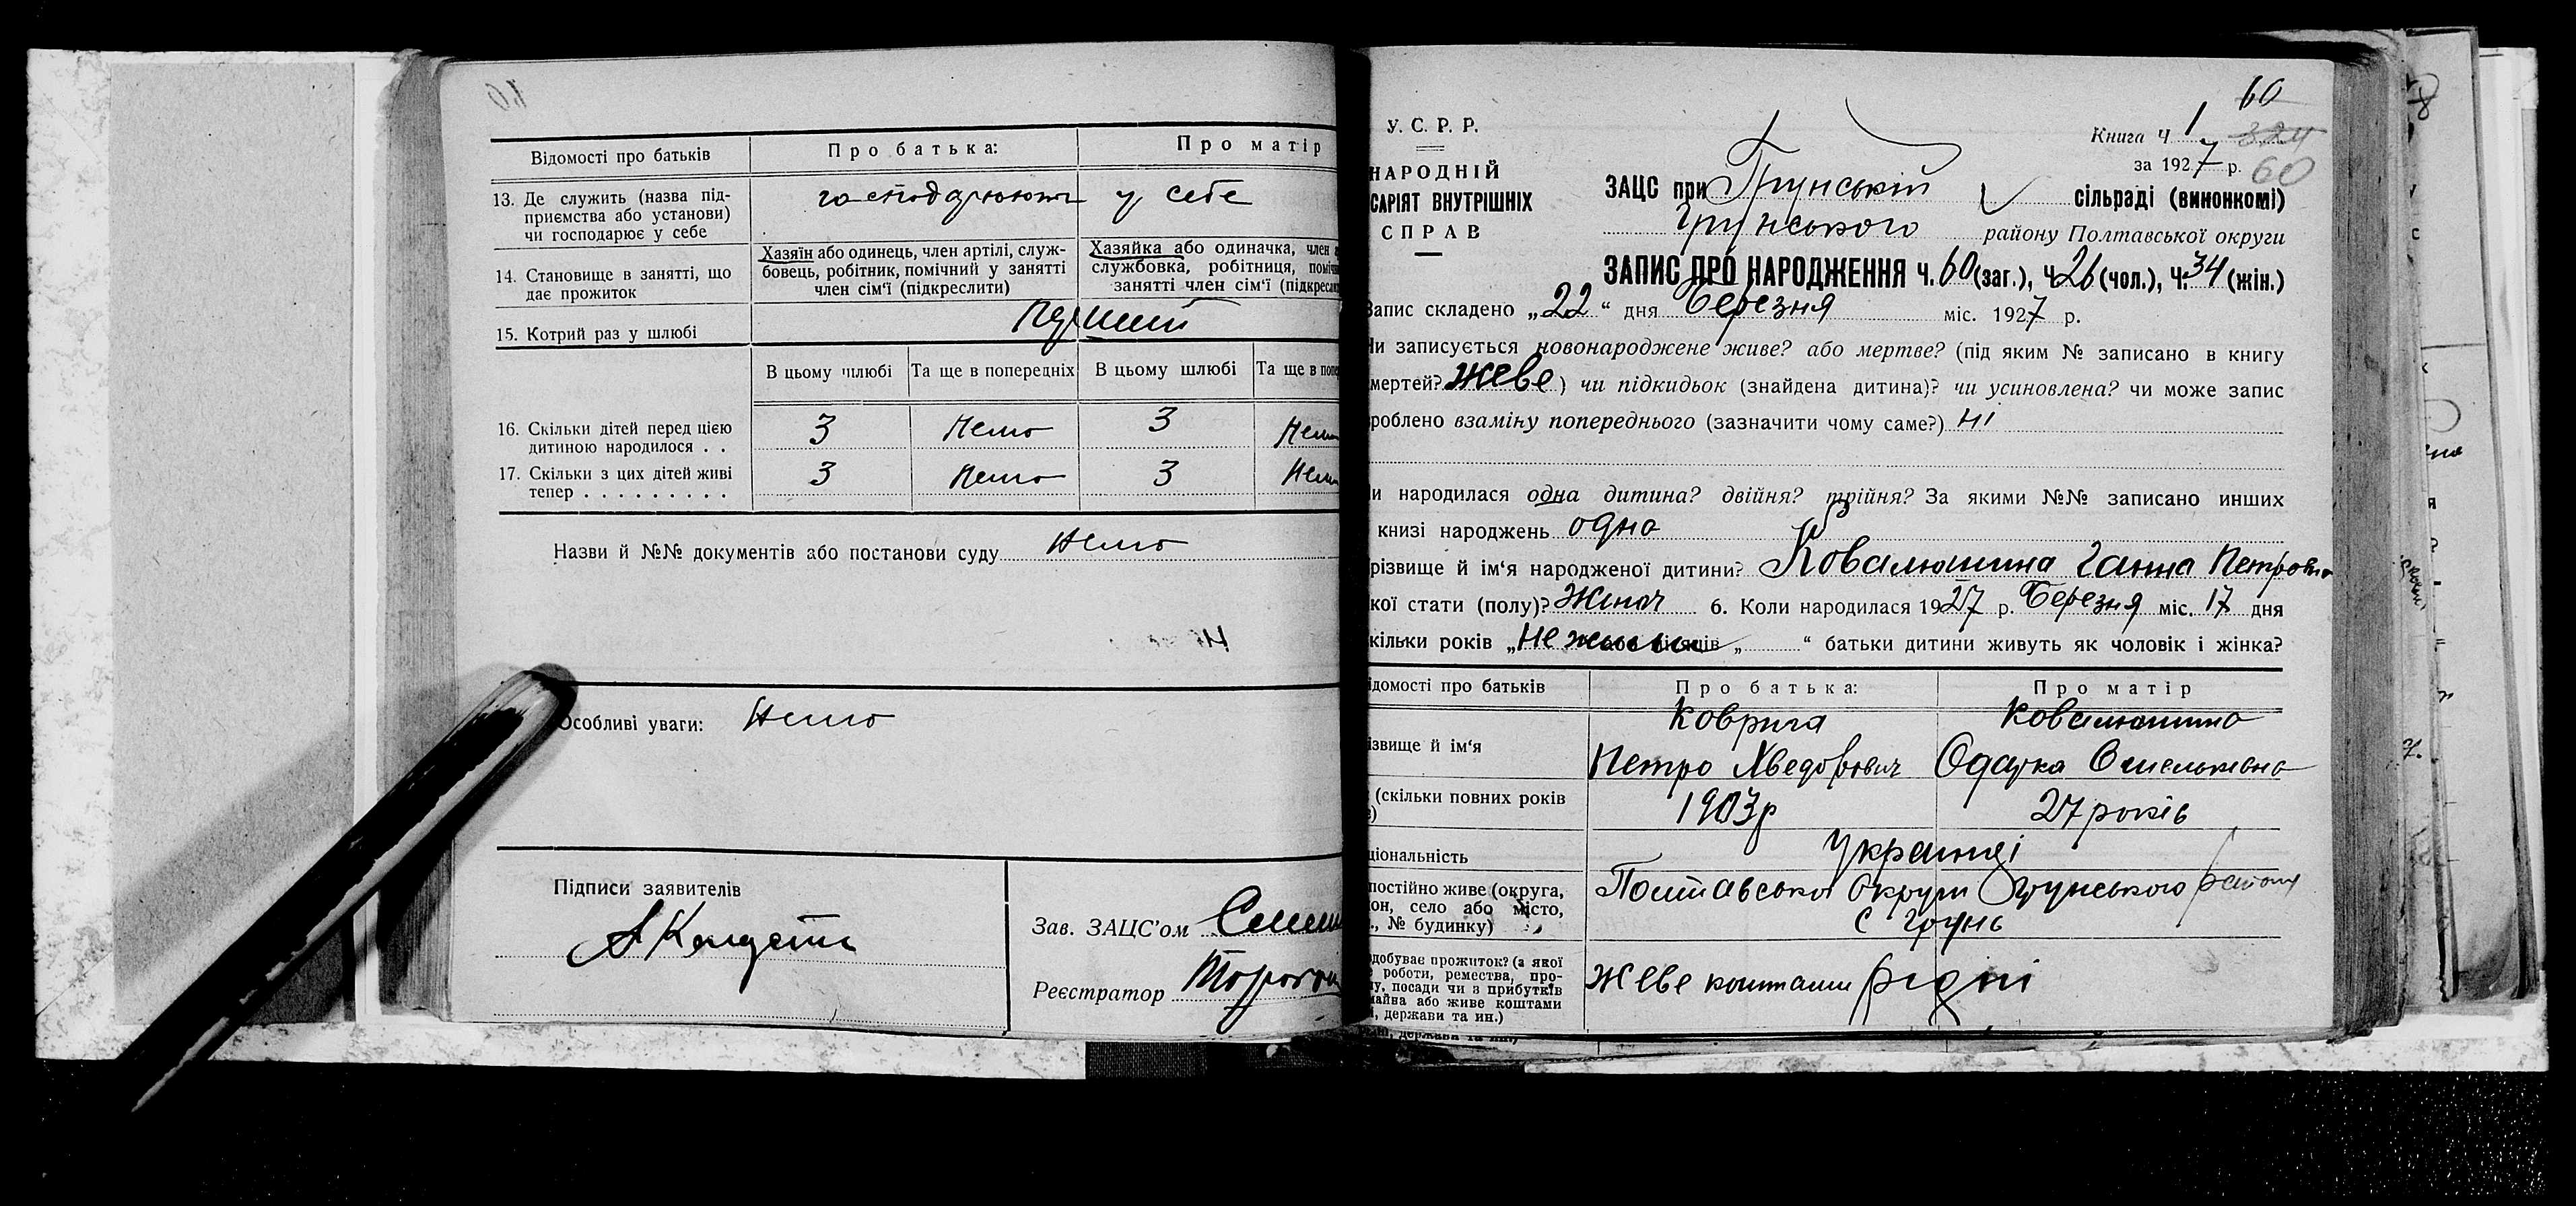 Відомості про батьків
Про батька:
Про матір
13. Де служить (назва під-
приємства або установи)
чи господарює у себе
господарюють у себе
14. Становище в занятті, що
дає прожиток
Хазяїн або одинець, член артілі, служ-
бовець, робітник, помічний у занятті
член сім'ї (підкреслити)
Хазяйка або одиначка, член
службовка, робітниця,
занятті член сім'ї
15. Котрий раз у шлюбі
Перший
В цьому шлюбі
Та ще в попередніх
В цьому шлюбі
Та ще в
16. Скільки дітей перед цією
дитиною народилося . .
3 Немо 3
17. Скільки з цих дітей живі
тепер . . . . . . . . .
3 Немо 3
Назви й №№ документів або постанови суду Немо
Особливі уваги: Немо
Підписи заявителів
Зав. ЗАЦС'ом
Реєстратор
60
У. С. Р. Р.
НАРОДНІЙ
САРІЯТ ВНУТРІШНІХ
СПРАВ
Книга Ч 1 324
за 1927 р. 60
ЗАЦС при Грунській сільраді (виконкомі)
Грунського району Полтавської округи
ЗАПИС ПРО НАРОДЖЕННЯ ч. 60 (заг.), ч. 26 (чол.), ч. 34 (жін.)
Запис складено „22“ дня Березня міс. 1927 р.
Чи записується новонароджене живе? або мертве? (під яким № записано в книгу
мертей? жеве) чи підкидьок (знайдена дитина)? чи усиновлена? чи може запис
роблено взаміну попереднього (зазначити чому саме?) Ні
и народилася одна дитина? двійня? трійня? За якими №№ записано инших
книзі народжень одна
різвище й ім'я народженої дитини? Ковалюшина Ганна Петровна
кої стати (полу)? Жіноч 6. Коли народилася 1927 р. Березня міс. 17 дня
кільки років „Не жили місяців „ “ батьки дитини живуть як чоловік і жінка?
ідомості про батьків
Про батька:
Про матір
ізвище й ім'я
Коврига
Петро Хведорович
Ковалюшина
Одарка Омельковна
(скільки повних років
1903р
27 років
ціональність
Українці
постійно живе (округа,
он, село або місто,
., № будинку)
Полтавської Округи Грунського району
с Грунь
добуває прожиток? (з якої
роботи, ремества, про-
у, посади чи з прибутків
майна або живе коштами
, держави та ин.)
Жеве коштами рідні